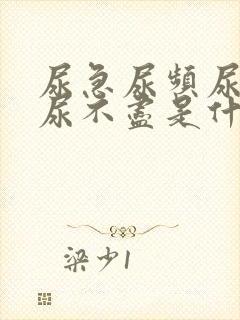 尿急尿频尿
尿不尽是什
梁少1